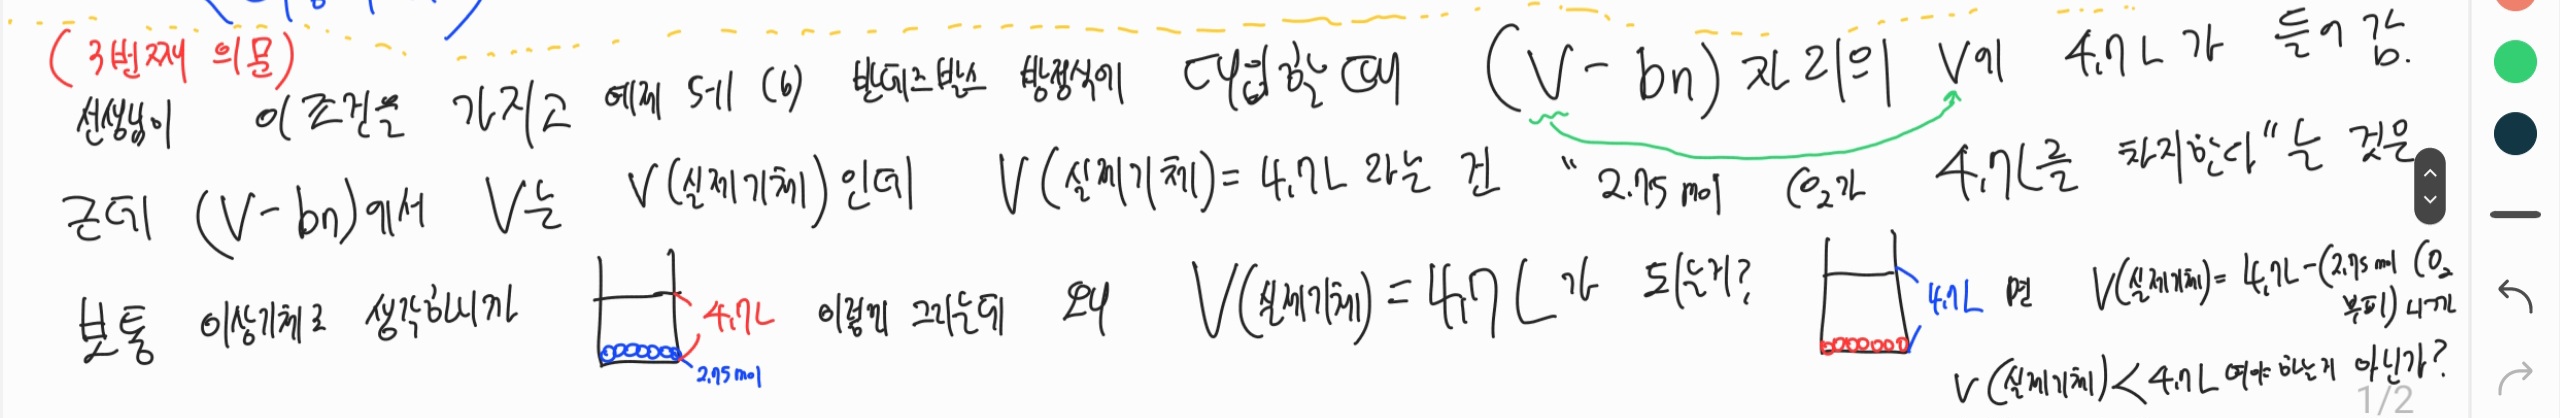 (3번째 의문)
선생님이 이 조건을 가지고 예제 5-11 (b) 반데르발스 방정식에 대입할 때 (V-bn) 자리의 V에 4.7L가 들어감.
근데 (V-bn)에서 V는 V(실제기체)인데 V(실제기체)=4.7L라는 건 "2.75mol CO₂가 4.7L를 차지한다"는 것은
보통 이상기체로 생각하니까 4.7L 2.75mol 이렇게 그리는데 왜 V(실제기체)=4.7L가 되는거? 4.7L 면 V(실제기체)=4.7L-(2.75mol CO₂ 부피)니까
V(실제기체)<4.7L여야 하는게 아닌가?
1/2